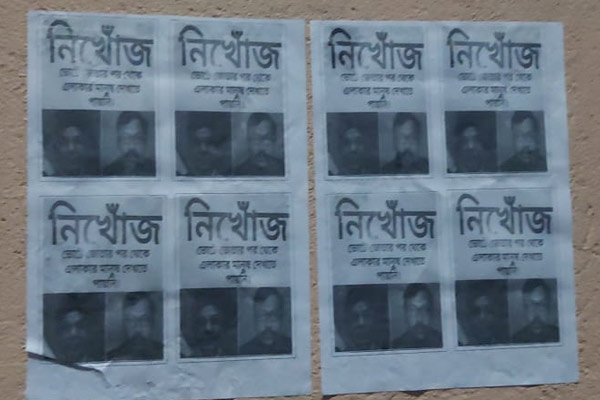 নিখোঁজ
ভোটে জেতার পর থেকে
এলাকার মানুষ দেখতে
পায়নি
নিখোঁজ
ভোটে জেতার পর থেকে
এলাকার মানুষ দেখতে
পায়নি
নিখোঁজ
ভোটে জেতার পর থেকে
এলাকার মানুষ দেখতে
পায়নি
নিখোঁজ
ভোটে জেতার পর থেকে
এলাকার মানুষ দেখতে
পায়নি
নিখোঁজ
ভোটে জেতার পর থেকে
এলাকার মানুষ দেখতে
পায়নি
নিখোঁজ
ভোটে জেতার পর থেকে
এলাকার মানুষ দেখতে
পায়নি
নিখোঁজ
ভোটে জেতার পর থেকে
এলাকার মানুষ দেখতে
পায়নি
নিখোঁজ
ভোটে জেতার পর থেকে
এলাকার মানুষ দেখতে
পায়নি